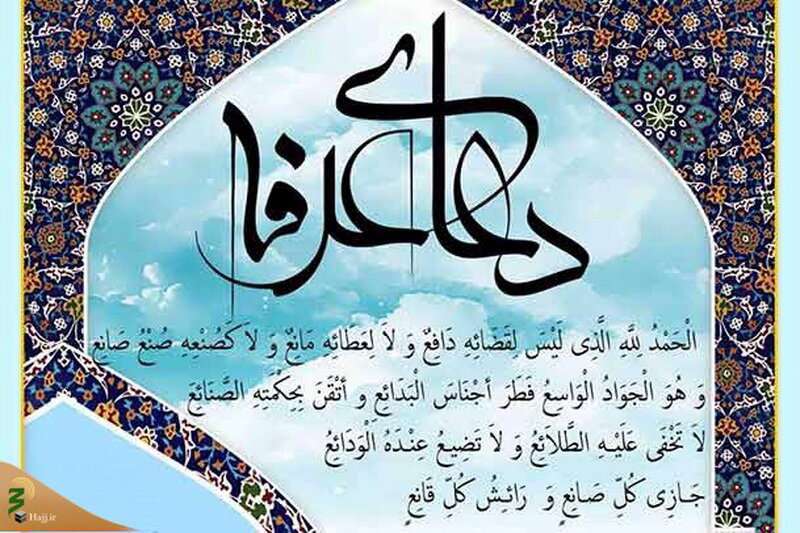 دعای عرفه
الْحَمْدُ لِلَّهِ الَّذِی لَیْسَ لِقَضَائِهِ دَافِعٌ وَ لاَ لِعَطَائِهِ مَانِعٌ وَ لاَ کَصُنْعِهِ صُنْعُ صَانِعٍ
وَ هُوَ الْجَوَادُ الْوَاسِعُ فَطَرَ أَجْنَاسَ الْبَدَائِعِ و أَتْقَنَ بِحِکْمَتِهِ الصَّنَائِعَ
لاَ تَخْفَى عَلَیْهِ الطَّلاَئِعُ وَ لاَ تَضِیعُ عِنْدَهُ الْوَدَائِعُ
جَازِی کُلِّ صَانِعٍ وَ رَائِشُ کُلِّ قَانِعٍ
Hajj.ir